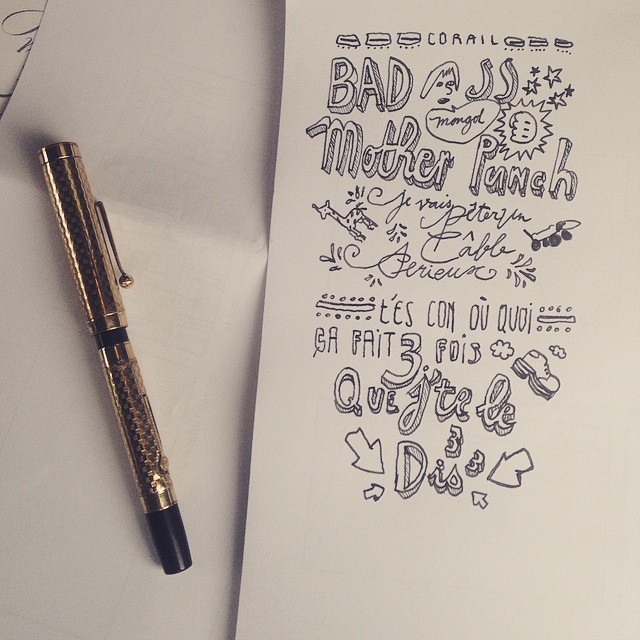 CORAIL
BAD ASS
mongol
Mother Punch
Je vais
Pêter un
Câble
Serieux
T'ES CON OÙ QUOI
ÇA FAIT 3 FOIS
QUE j'te le
Dis 3 3 3